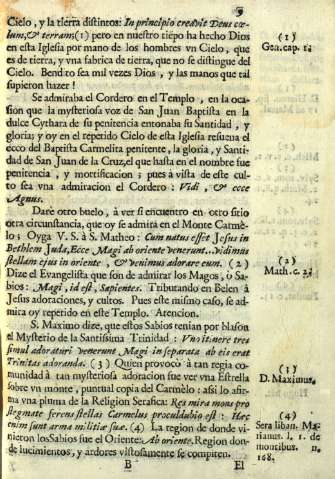 Cielo, y la tierra distintos: In principio creavit Deus cœ-
lum, & terram, (1) pero en nuestro tiẽpo ha hecho Dios
en esta Iglesia por mano de los hombres vn Cielo, que
es de tierra, y vna fabrica de tierra, que no se distingue del
Cielo. Bendito sea mil vezes Dios, y las manos que tal
supieron hazer!
(1)
Gen. cap. 1.
Se admiraba el Cordero en el Templo, en la oca-
sion que la mysteriosa voz de San Juan Baptista en la
dulce Cythara de su penitencia entonaba su Santidad, y
gloria; y oy en el repetido Cielo de esta Iglesia resuena el
ecco del Baptista Carmelita penitente, la gloria, y Santi-
dad de San Juan de la Cruz, el que hasta en el nombre fue
penitencia, y mortificacion; pues à vista de este cul-
to sea vna admiracion el Cordero: Vidi, & ecce
Agnus.
Darè otro buelo, à ver si encuentro en otro sitio
otra circunstancia, que oy se admira en el Monte Carmè-
lo: Oyga V. S. à S. Matheo: Cum natus esset Jesus in
Bethlem Juda, Ecce Magi ab oriente venerunt.. vidimus
stellam ejus in oriente, & venimus adorare eum. (2)
Dize el Evangelista que son de admirar los Magos, ò Sa-
bios: Magi, id est, Sapientes. Tributando en Belèn à
Jesus adoraciones, y cultos. Pues este mismo caso, se ad-
mira oy repetido en este Templo. Atencion.
(2)
Math. c. 2.
S. Maximo dize, que estos Sabios tenian por blasòn
el Mysterio de la Santissima Trinidad: Vno itinere tres
simul adoraturi venerunt Magi inseparata ab eis erat
Trinitas adoranda. (3) Quien provocò à tan regia co-
munidad à tan mysteriosa adoracion fue ver vna Estrella
sobre vn monte, puntual copia del Carmèlo: assi lo afir-
ma vna pluma de la Religion Serafica: Res mira mons pro
stegmate ferens stellas Carmelus proculdubio est: Hæc
enim sunt arma militiæ suæ. (4) La region de donde vi-
nieron los Sabios fue el Oriente: Ab oriente. Region don-
de lucimientos, y ardores vistosamente se compiten.
D. Maximus.
(4)
Sera liban. Ma-
rianus. l. 1. de
montibus. n.
168.
B
El